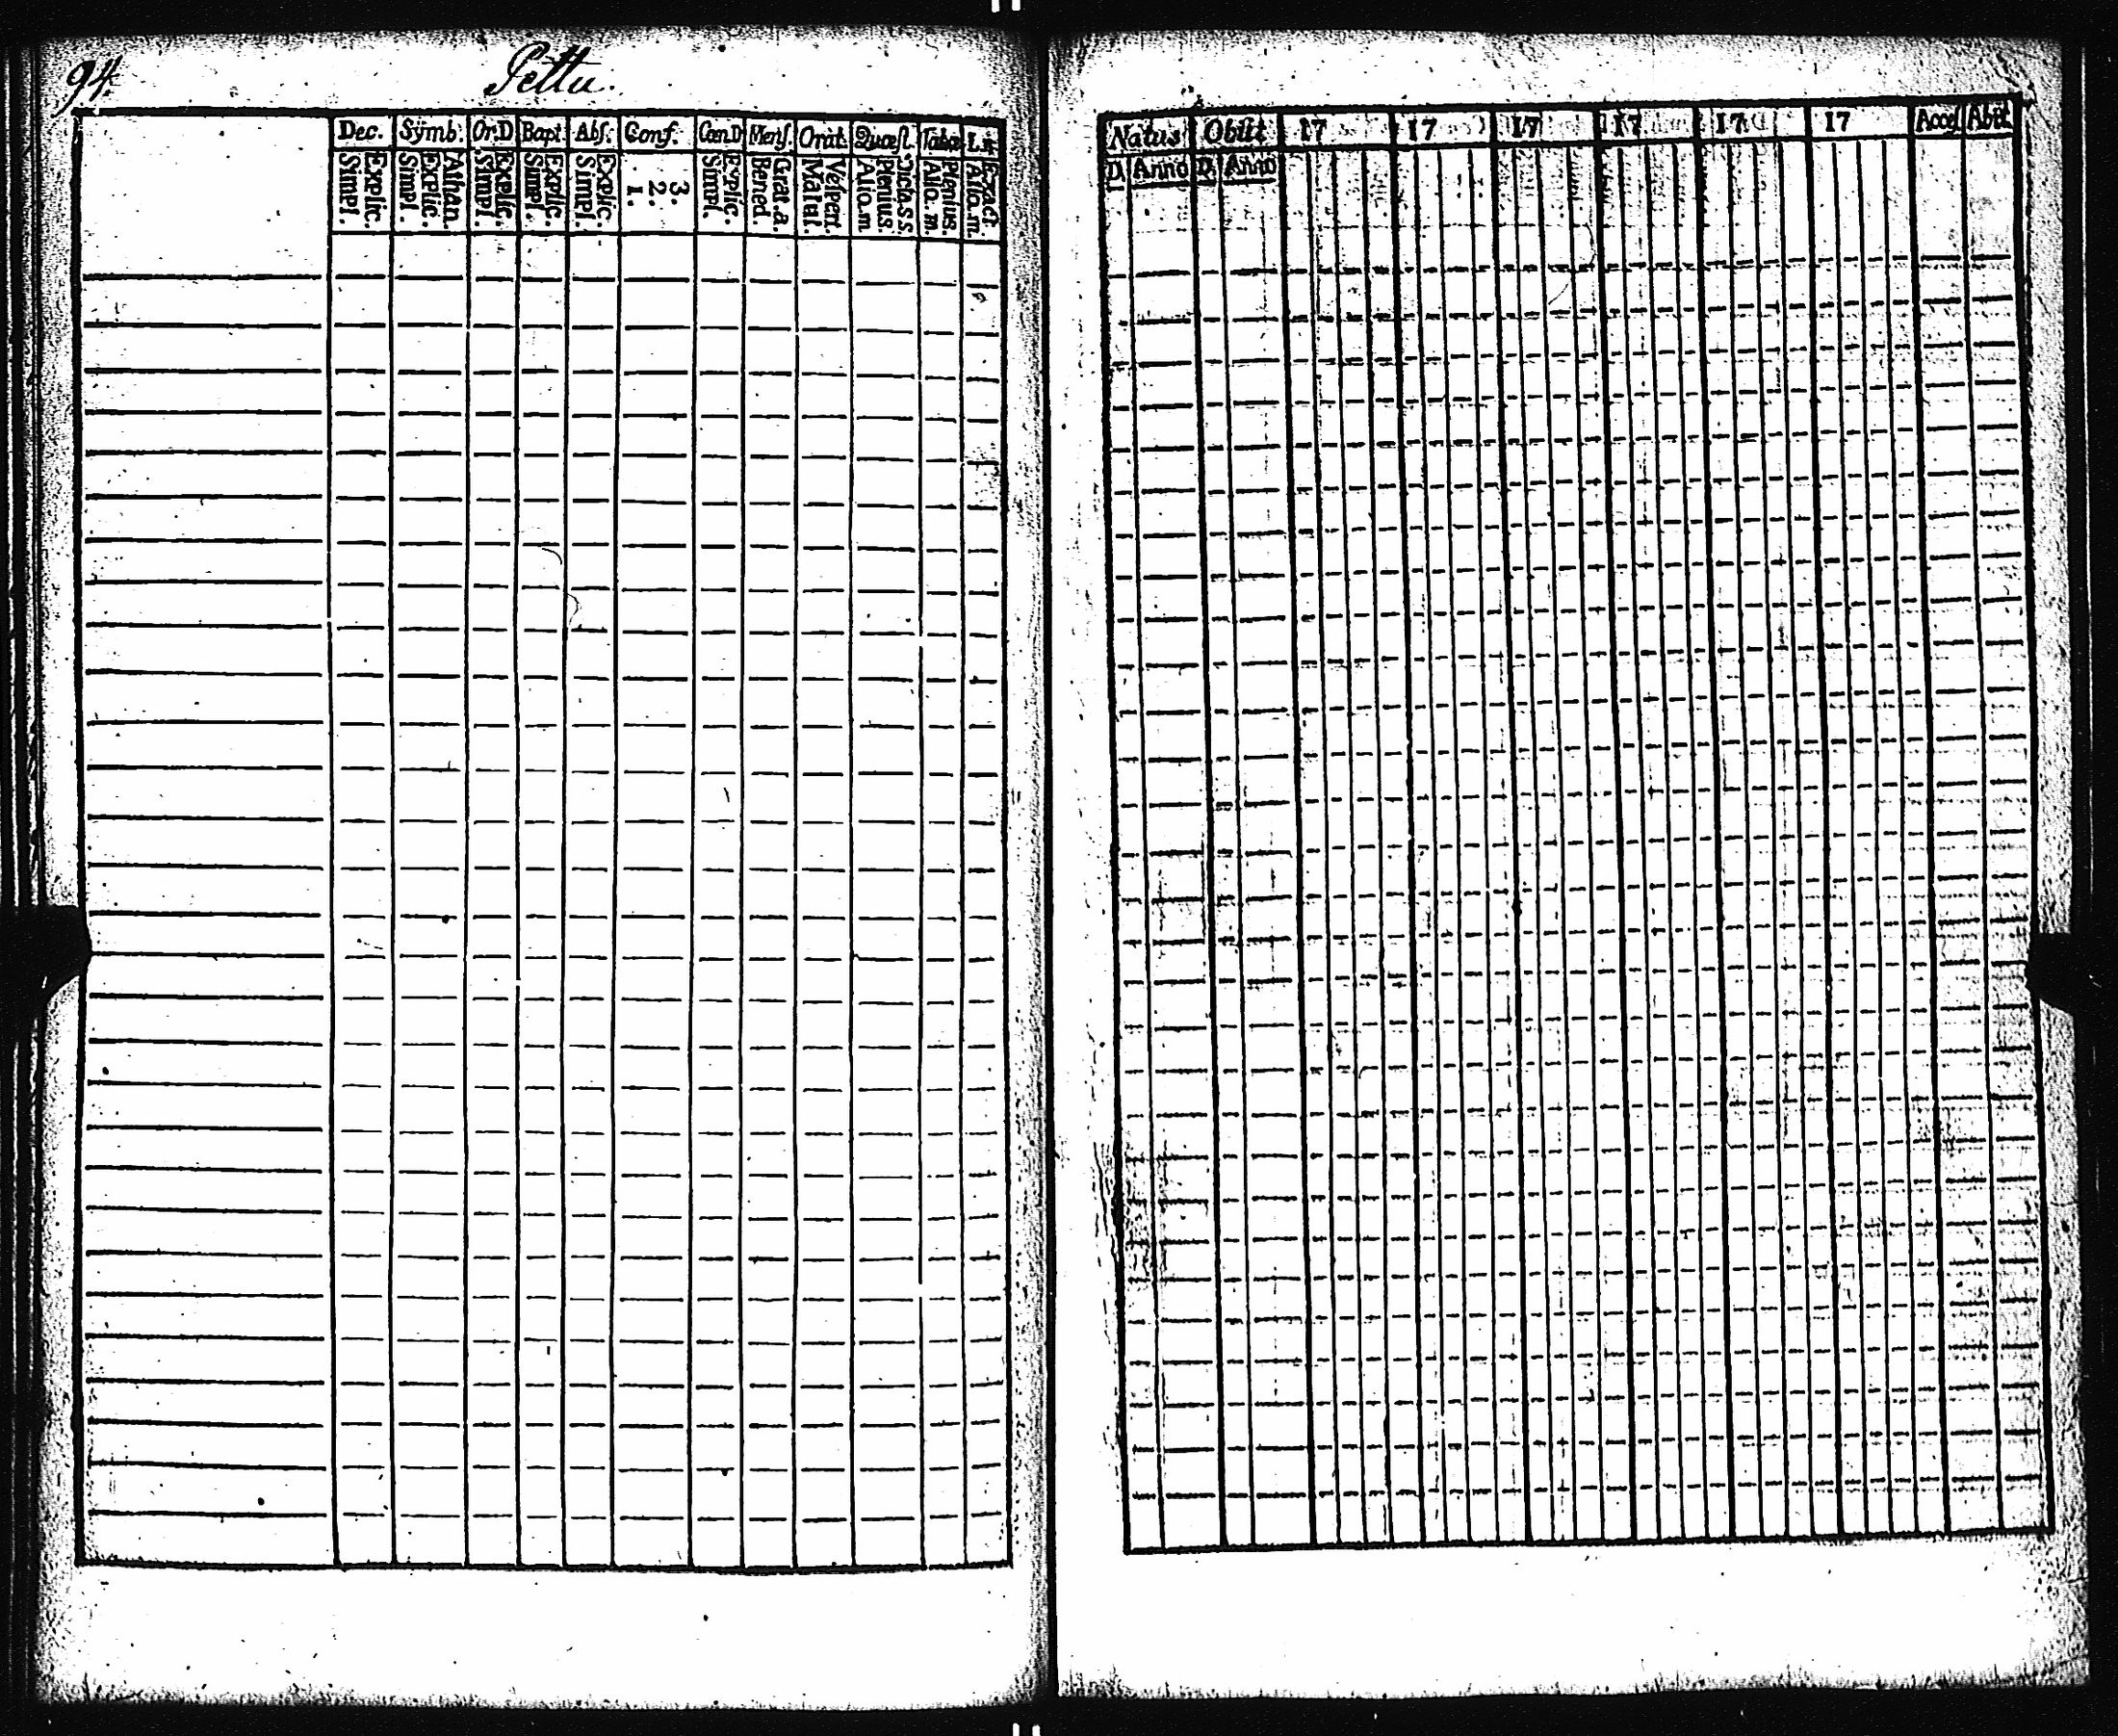 94.
Pettu.
Dec. Symb. Or.D Bapt. Abſ. Conf. Cœn.D Menſ. Orat. Quæſt. Taba L.n
Explic. Simpl.
Athan. Explic. Simpl.
Explic. Simpl.
Explic. Simpl.
Explic. Simpl.
3. 2. 1.
Explic. Simpl.
Grat. a. Bened.
Veſpert. Matut.
Dicta S S. Plenius. Alio. m
Plenius. Alio. m.
Exact. Alio. m.
Natus Obiit 17 17 17 17 17 17 Acceſ Abiit
D. Anno D. Anno